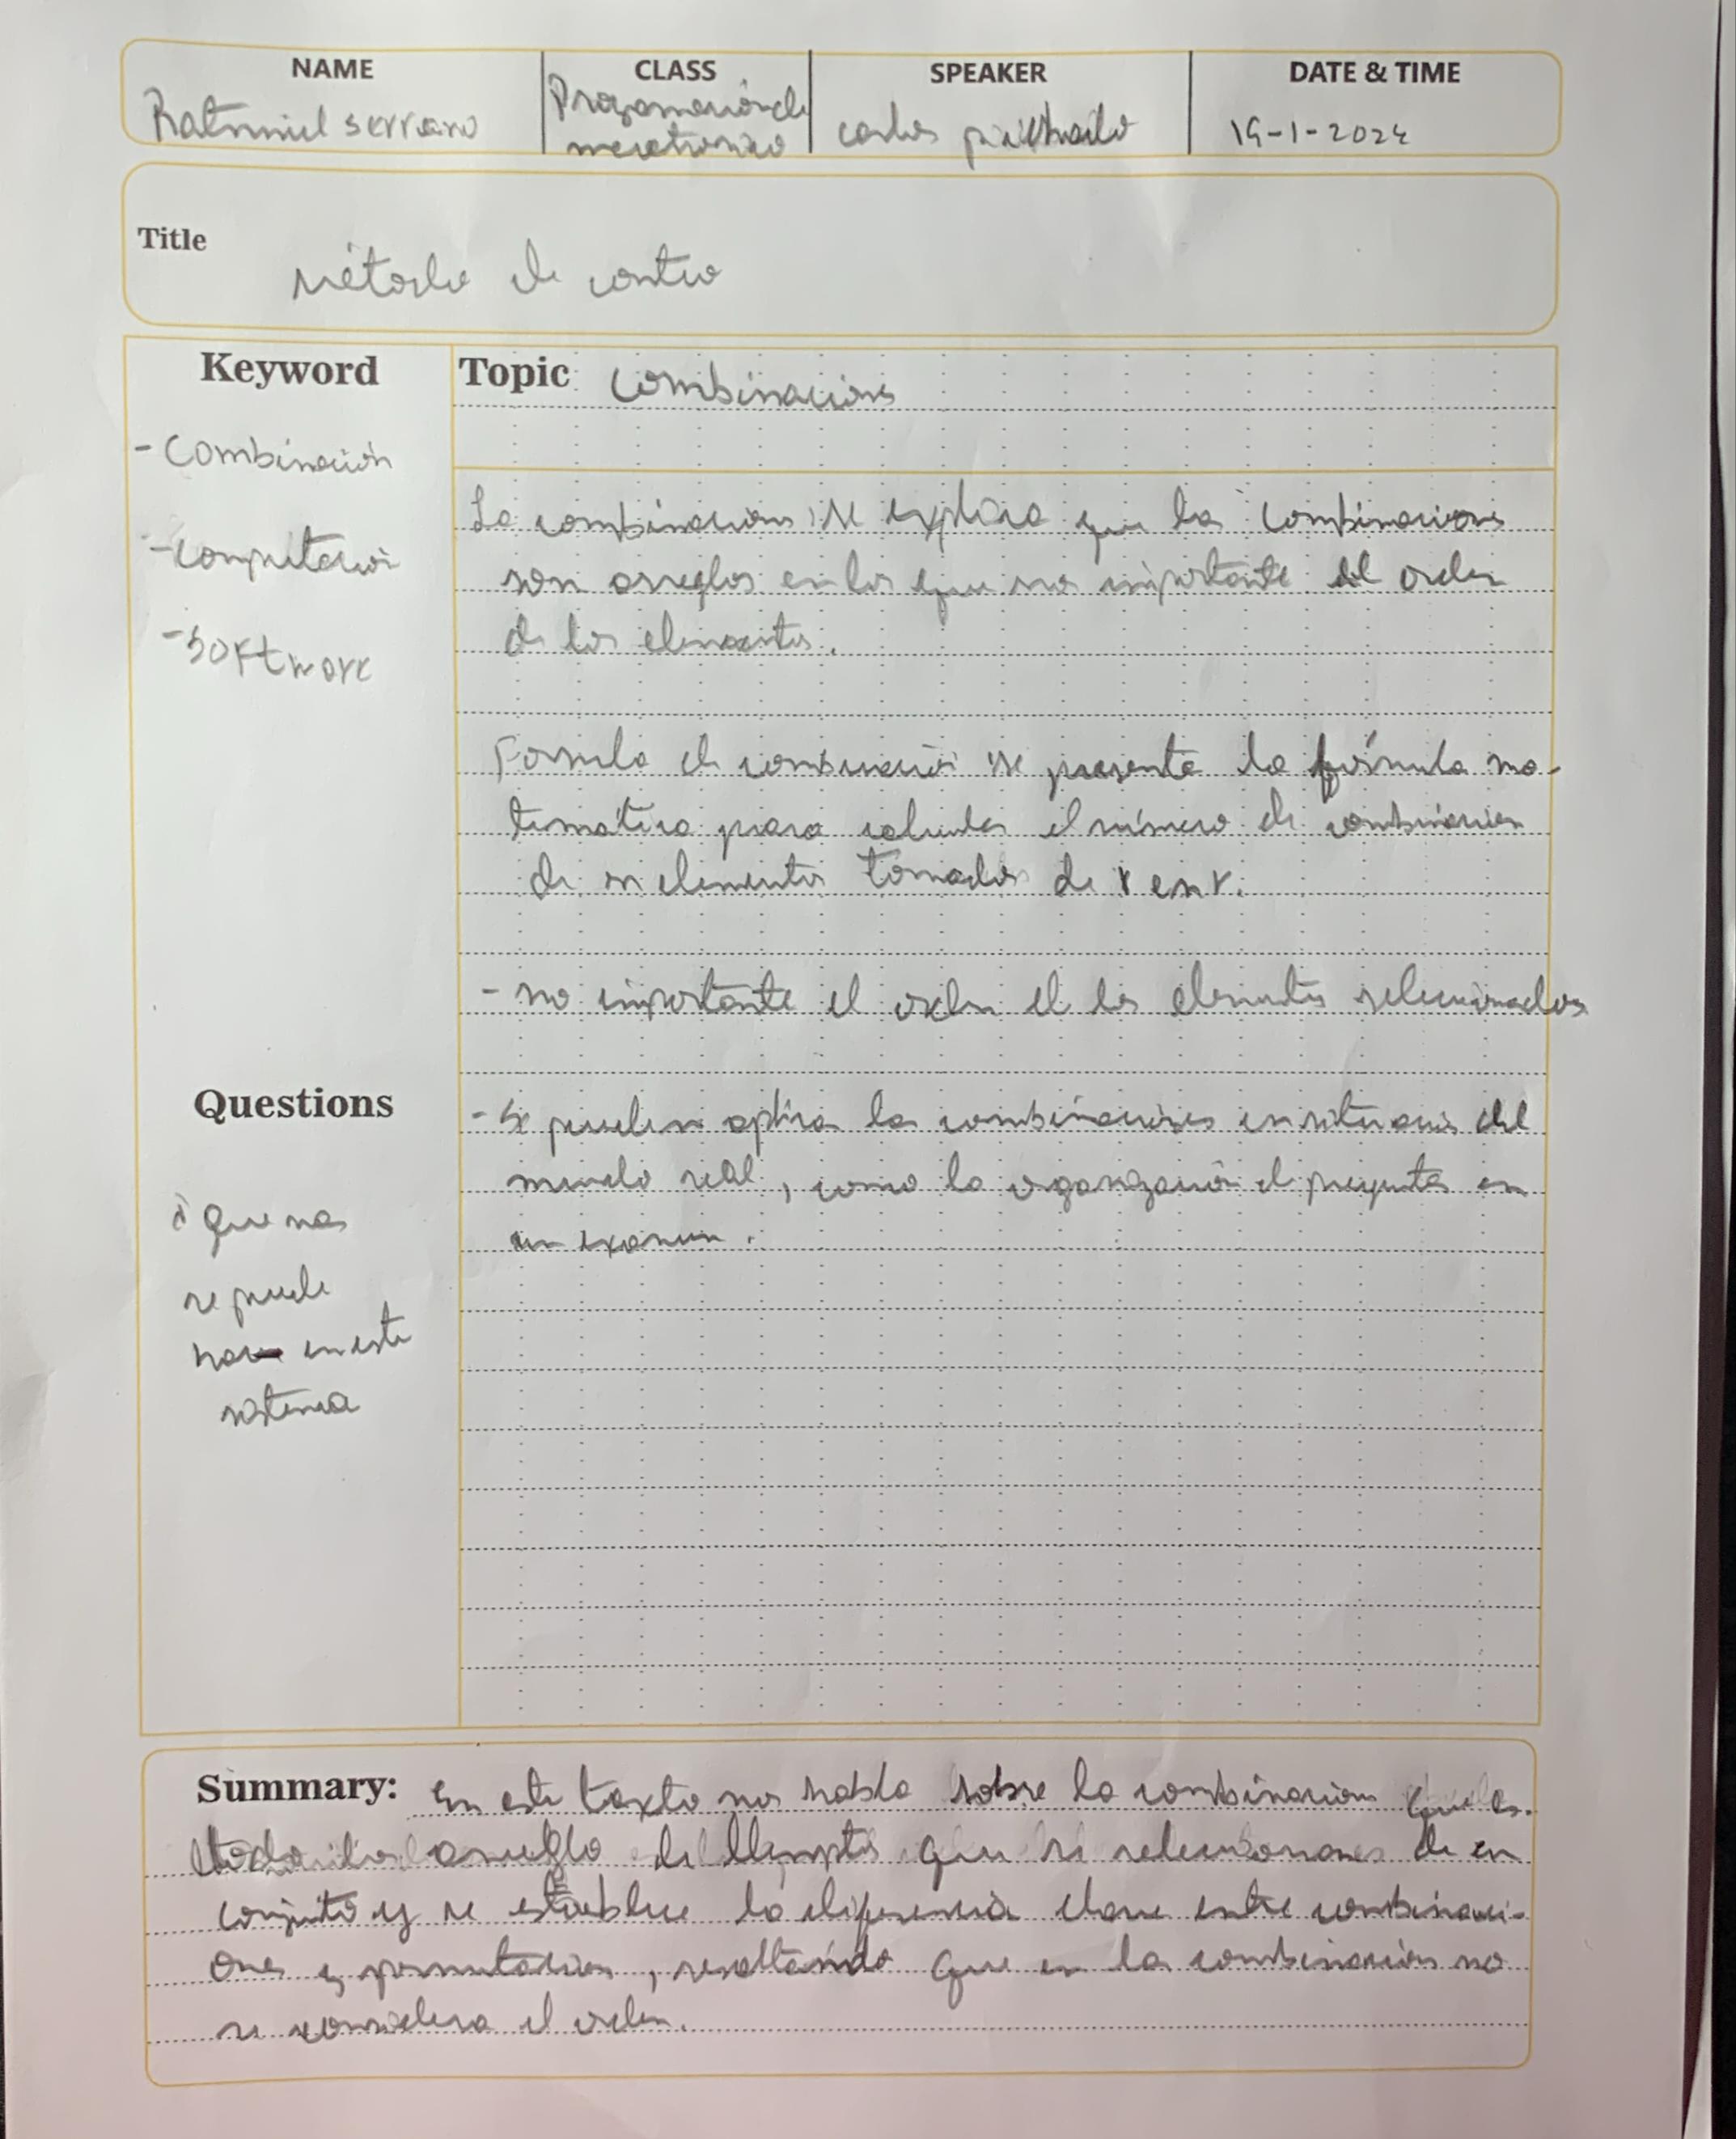 NAME CLASS SPEAKER DATE & TIME
serrano
carlos 19-1-2024
Title
Método de conteo
Keyword
- Combinación
- Computación
- Software
Topic Combinaciones
La combinacions se explica que las combinaciones
son arreglos en los que no importante el orden
de los elementos.
Formula de combinación se presenta la fórmula ma-
temática para calcular el número de combinación
de n elementos tomados de r en r.
- no importante el orden el los elementos seleccionados
Questions
- Se pueden aplica las combinaciones en situacis del
mundo real, como la organización de preguntas en
un examen.
¿ que nos
se puede
en este
sistema
Summary: En este texto nos habla sobre la combinacions que es
todo los arreglo de que se de un
conjunto y se establece la diferencia clave entre combinaci-
ones y permutacion, resaltando que en la combinación no
se considera el orden.